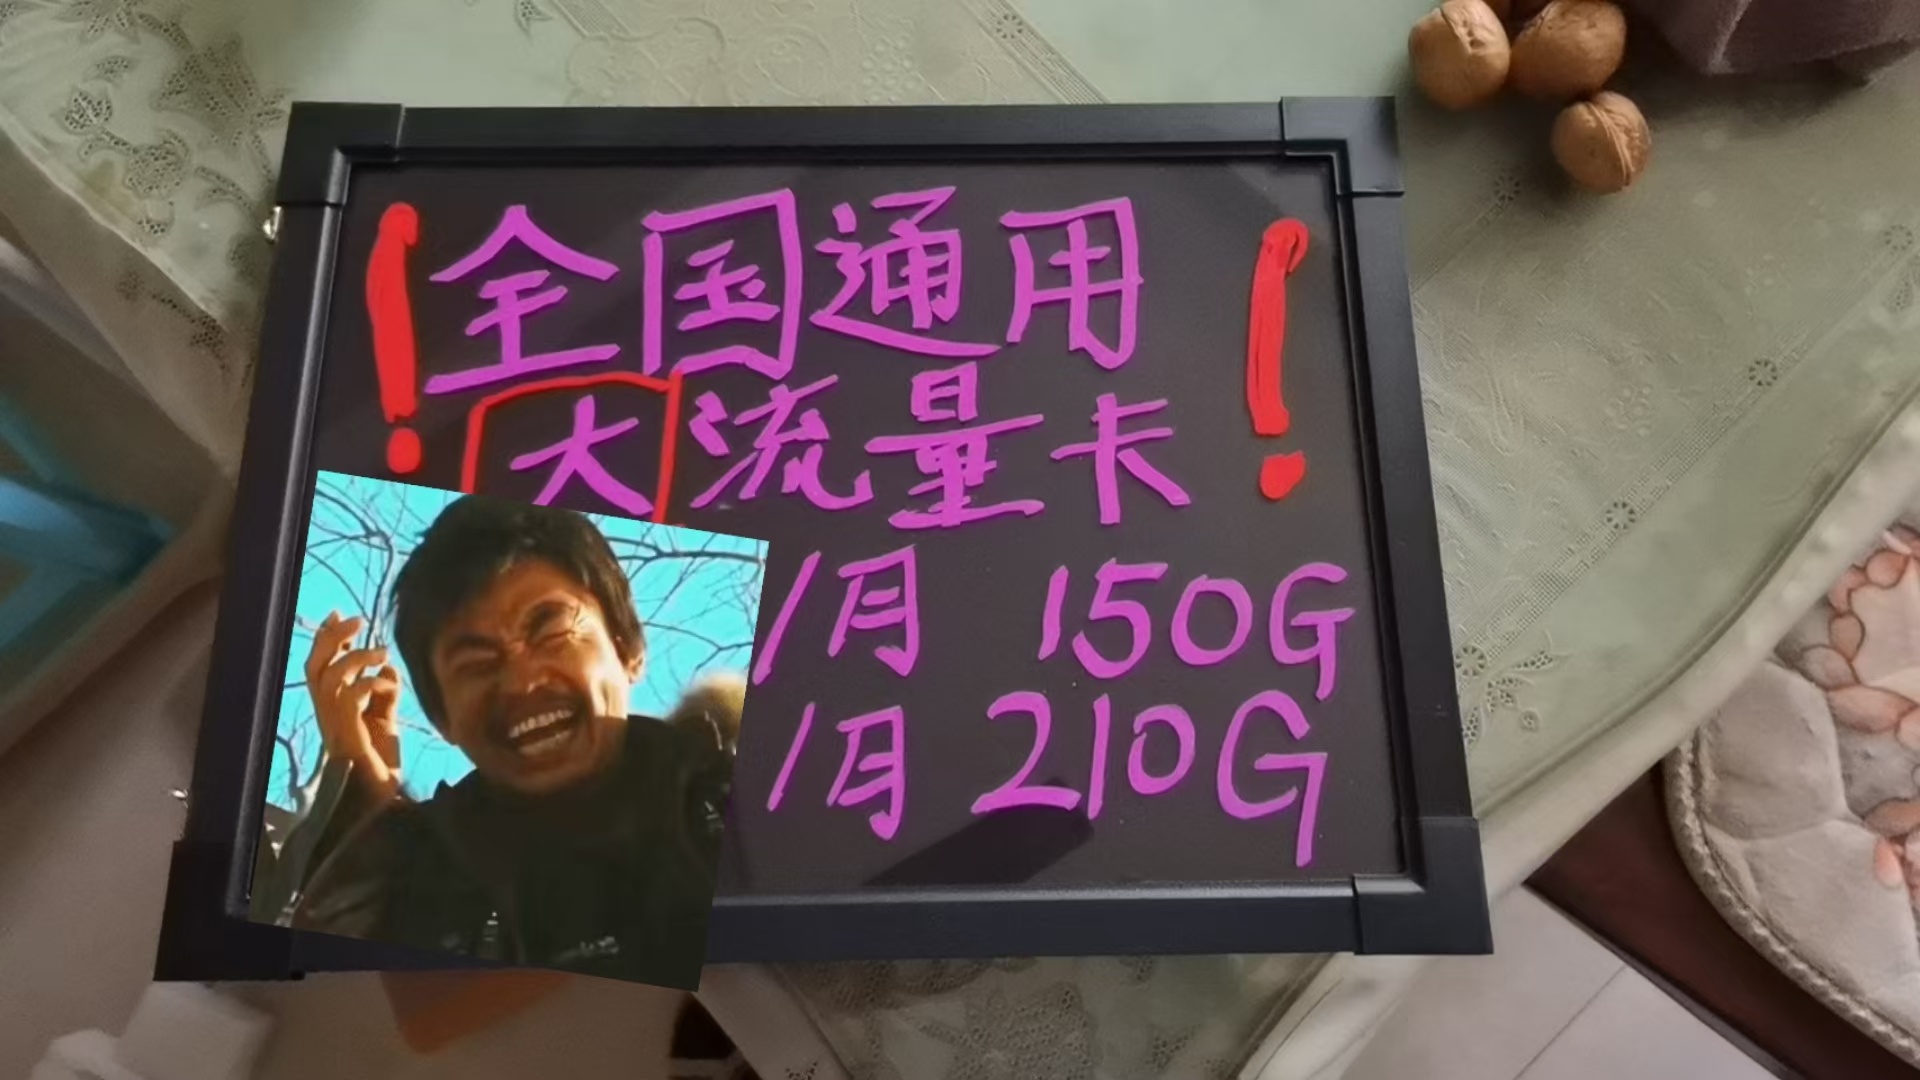 ！全国通用！
大流量卡
/月 150G
/月 210G